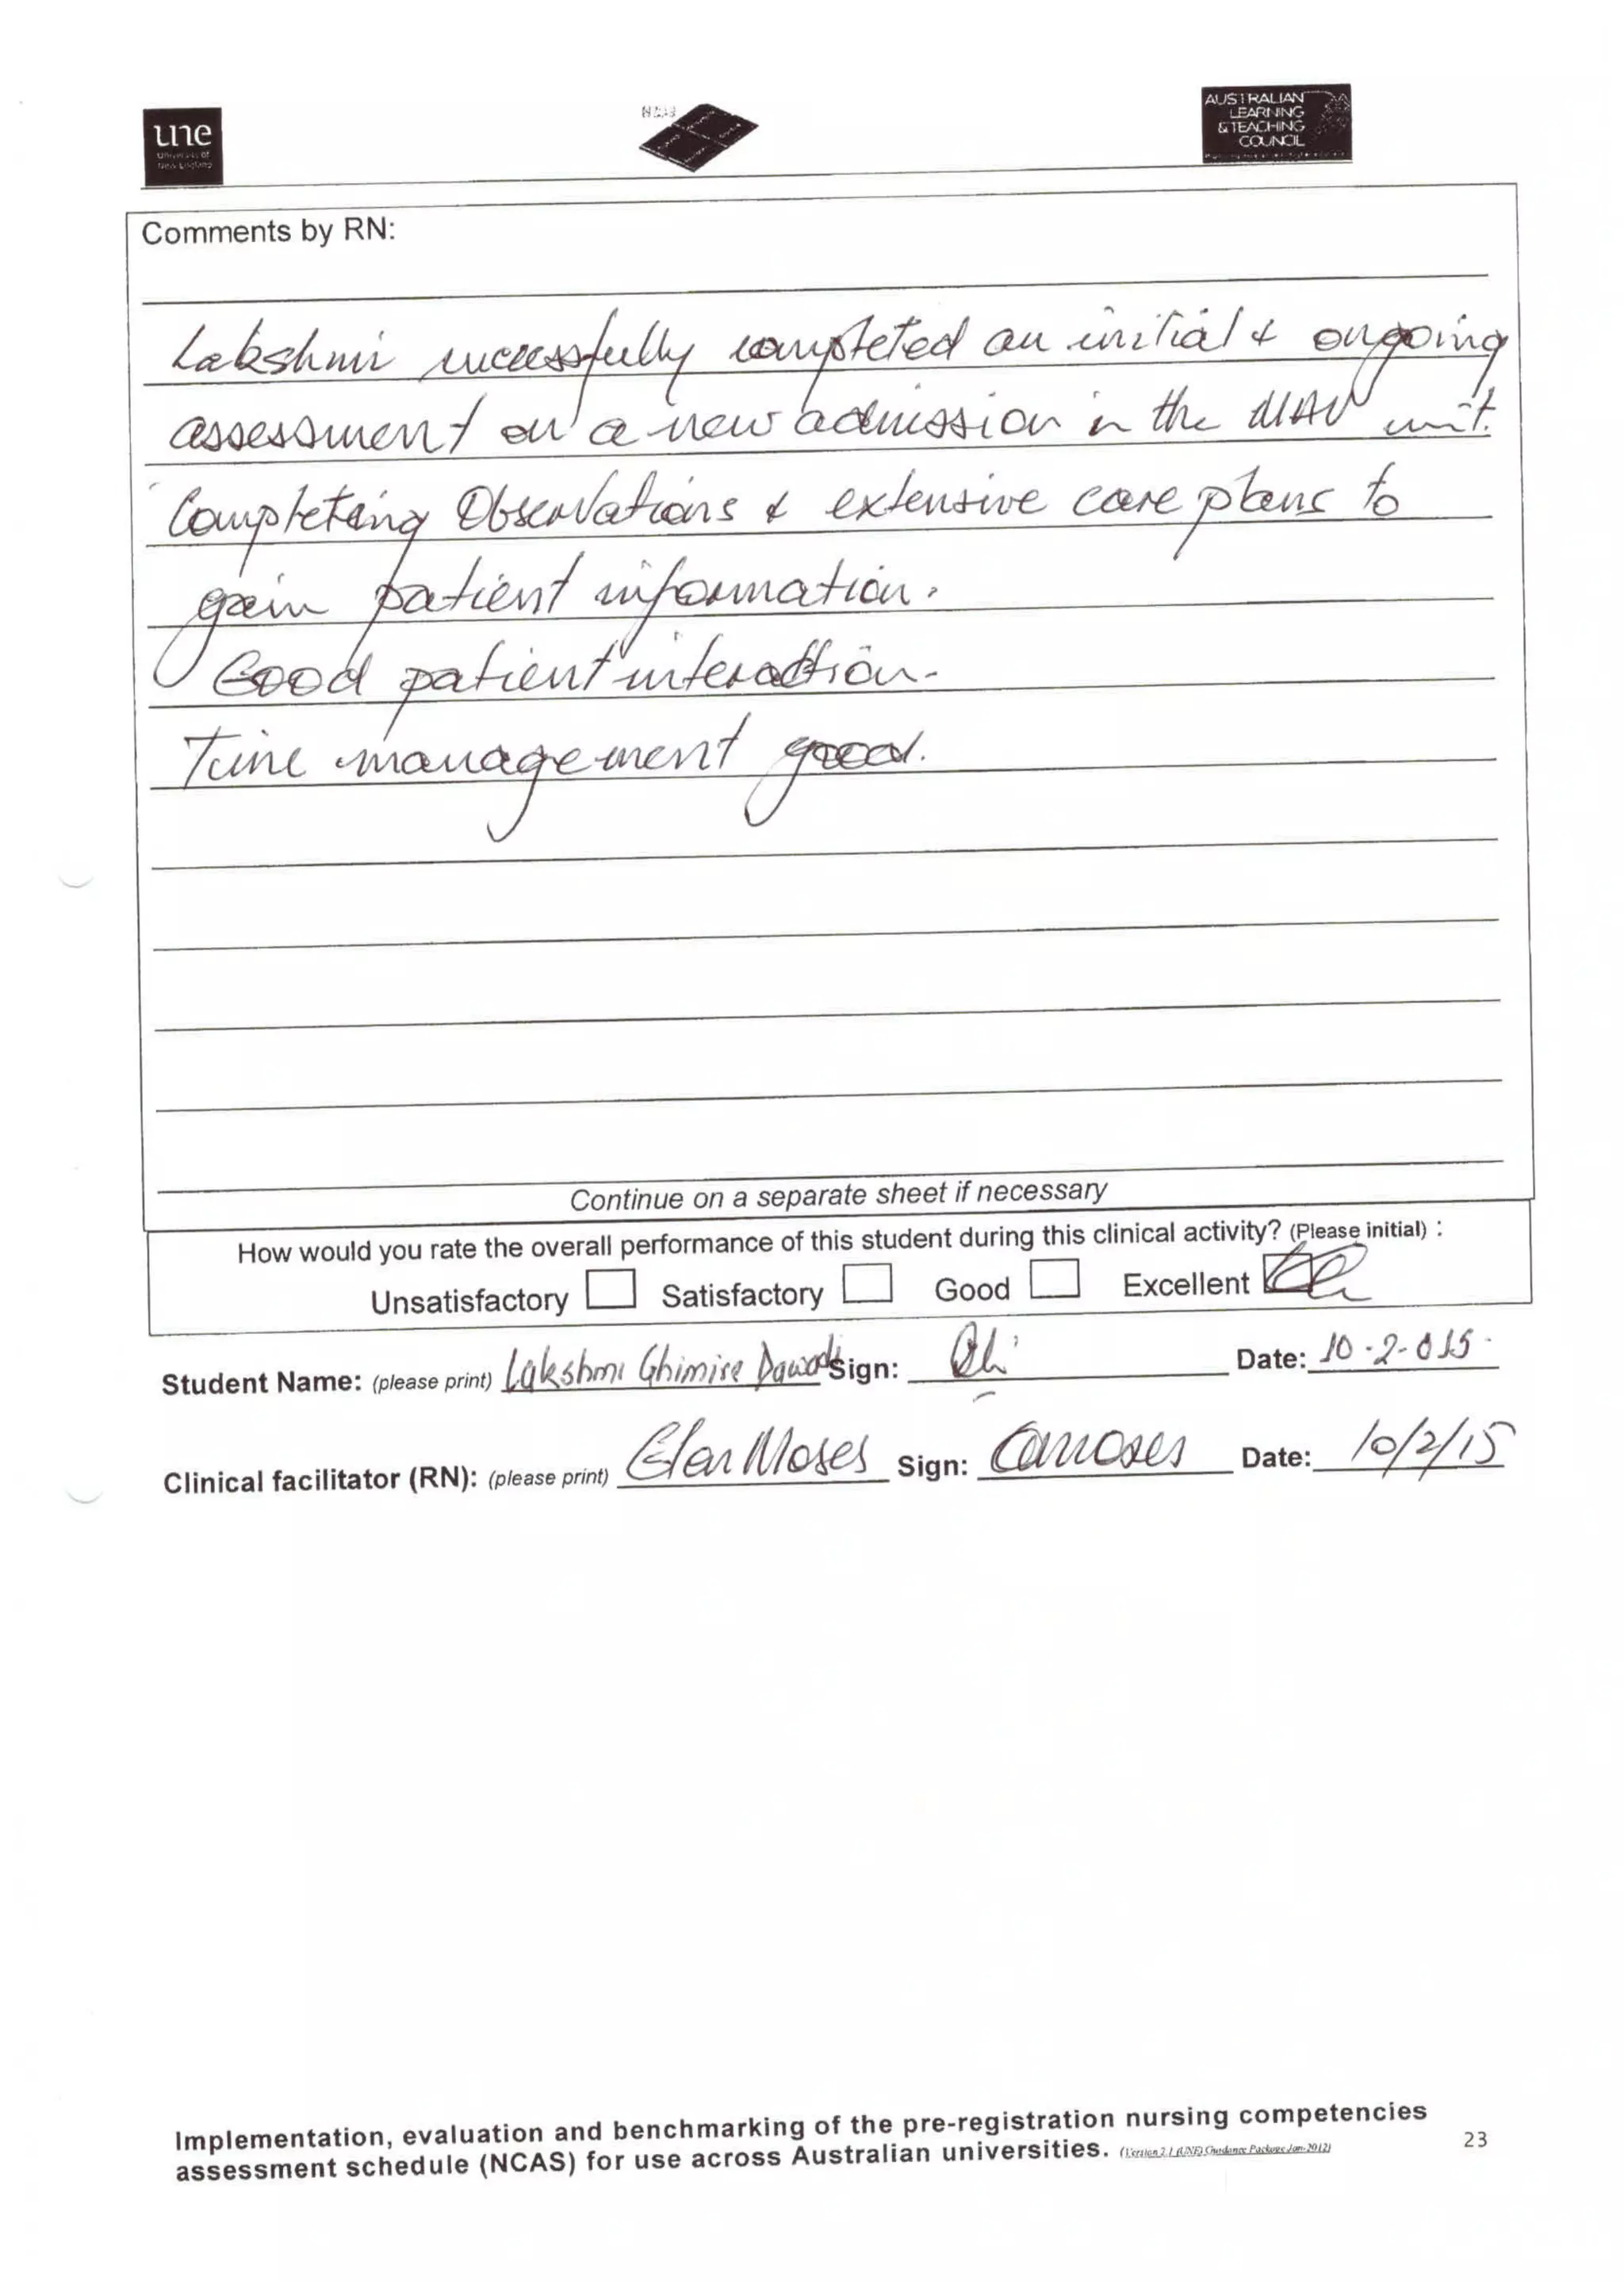 une
University of
New England
AUSTRALIAN
LEARNING
& TEACHING
COUNCIL
Comments by RN:
Lakshmi successfully completed an initial & ongoing
assessment on a new admission in the MAU unit.
Completing Observations & extensive care plans to
gain patient information.
Good patient interaction.
Time management good.
Continue on a separate sheet if necessary
How would you rate the overall performance of this student during this clinical activity? (Please initial) :
Unsatisfactory Satisfactory Good Excellent
Student Name: (please print) Lakshmi Ghimire Sign: Date: 10-2-015
Clinical facilitator (RN): (please print) Moses Sign: Date: 10/2/15
Implementation, evaluation and benchmarking of the pre-registration nursing competencies
assessment schedule (NCAS) for use across Australian universities. (Version 2.1 (UNE) Guidance Package Jan-2012)
23